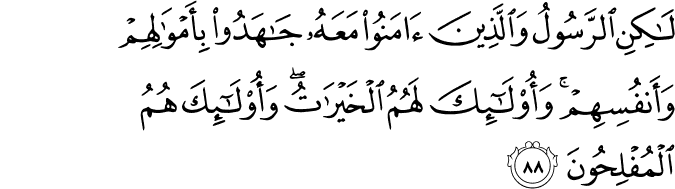 لَـٰكِنِ ٱلرَّسُولُ وَٱلَّذِينَ ءَامَنُوا۟ مَعَهُۥ جَـٰهَدُوا۟ بِأَمْوَٰلِهِمْ
وَأَنفُسِهِمْ ۚ وَأُو۟لَـٰٓئِكَ لَهُمُ ٱلْخَيْرَٰتُ ۖ وَأُو۟لَـٰٓئِكَ هُمُ
ٱلْمُفْلِحُونَ ٨٨